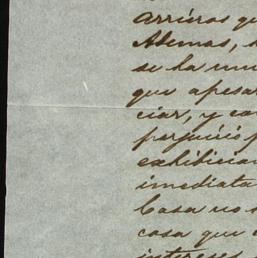 arrieros qu
Ademas, s
se la mu
que apesar
ciar, y co
perjuicio p
exhibician
imediata
Casa no s
casa que
intereses